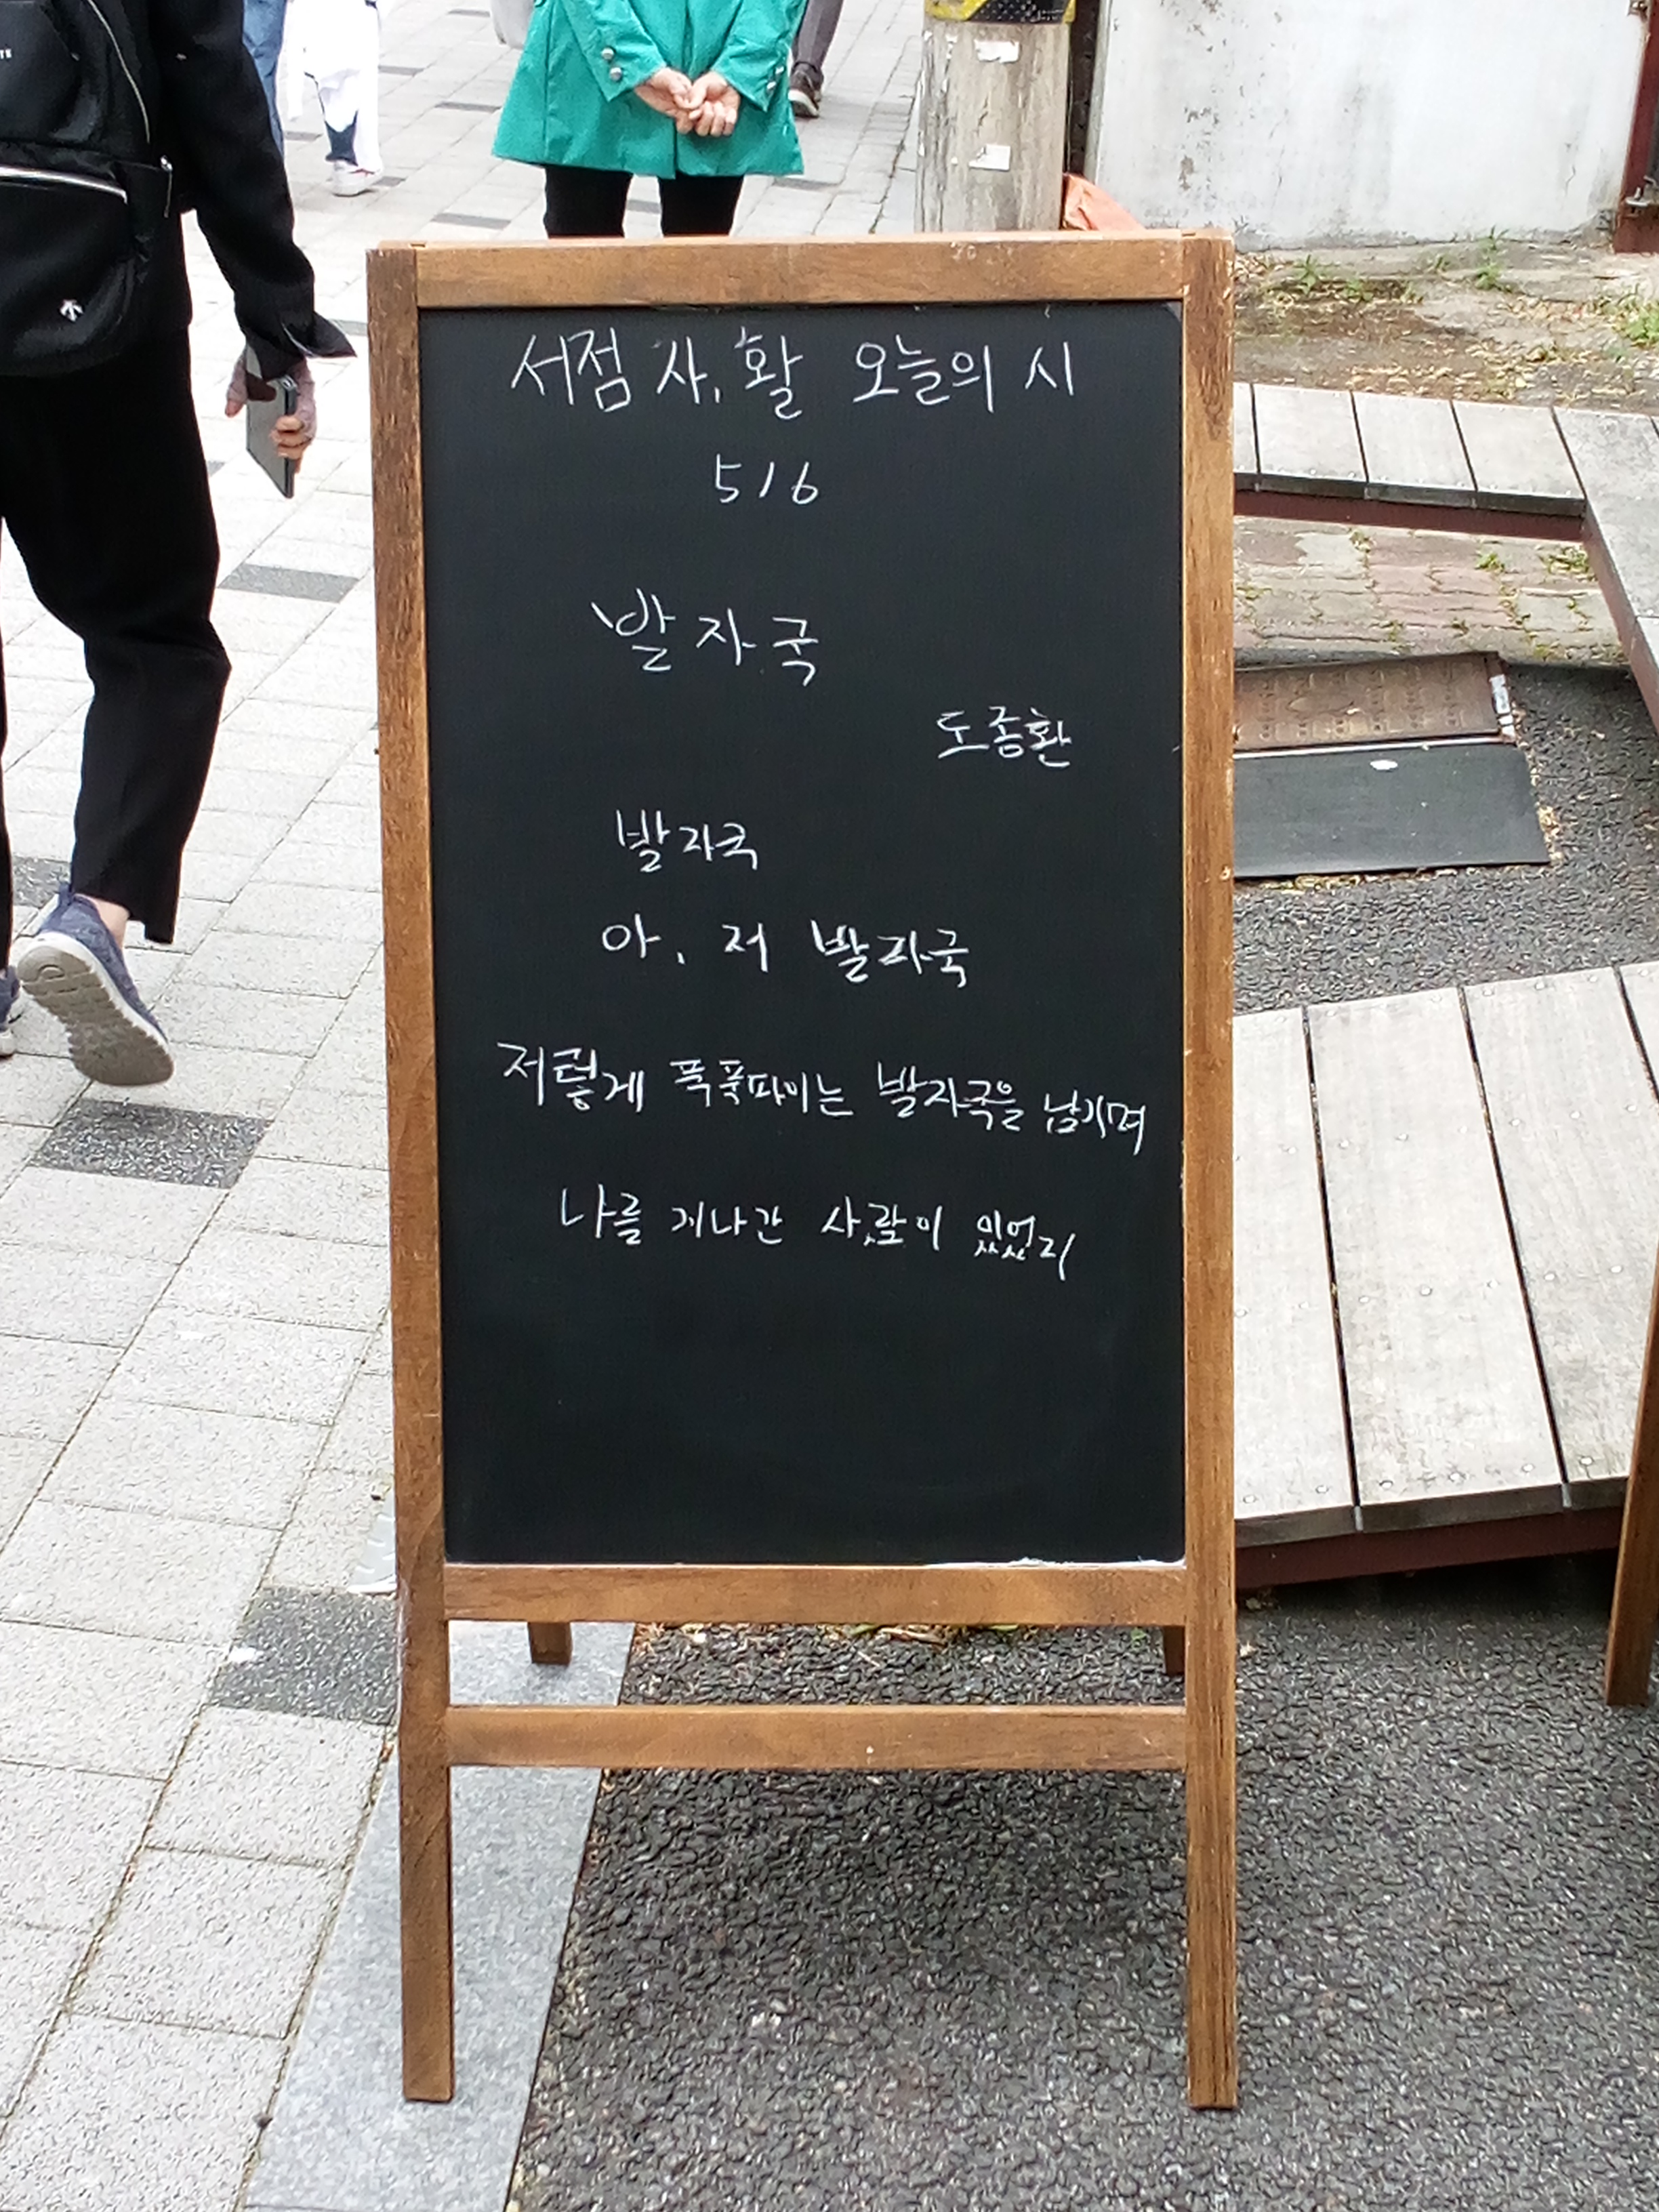 서점 사, 활 오늘의 시
5/6
발자국
도종환
발자국
아, 저 발자국
저렇게 푹푹파이는 발자국을 남기며
나를 지나간 사람이 있었지